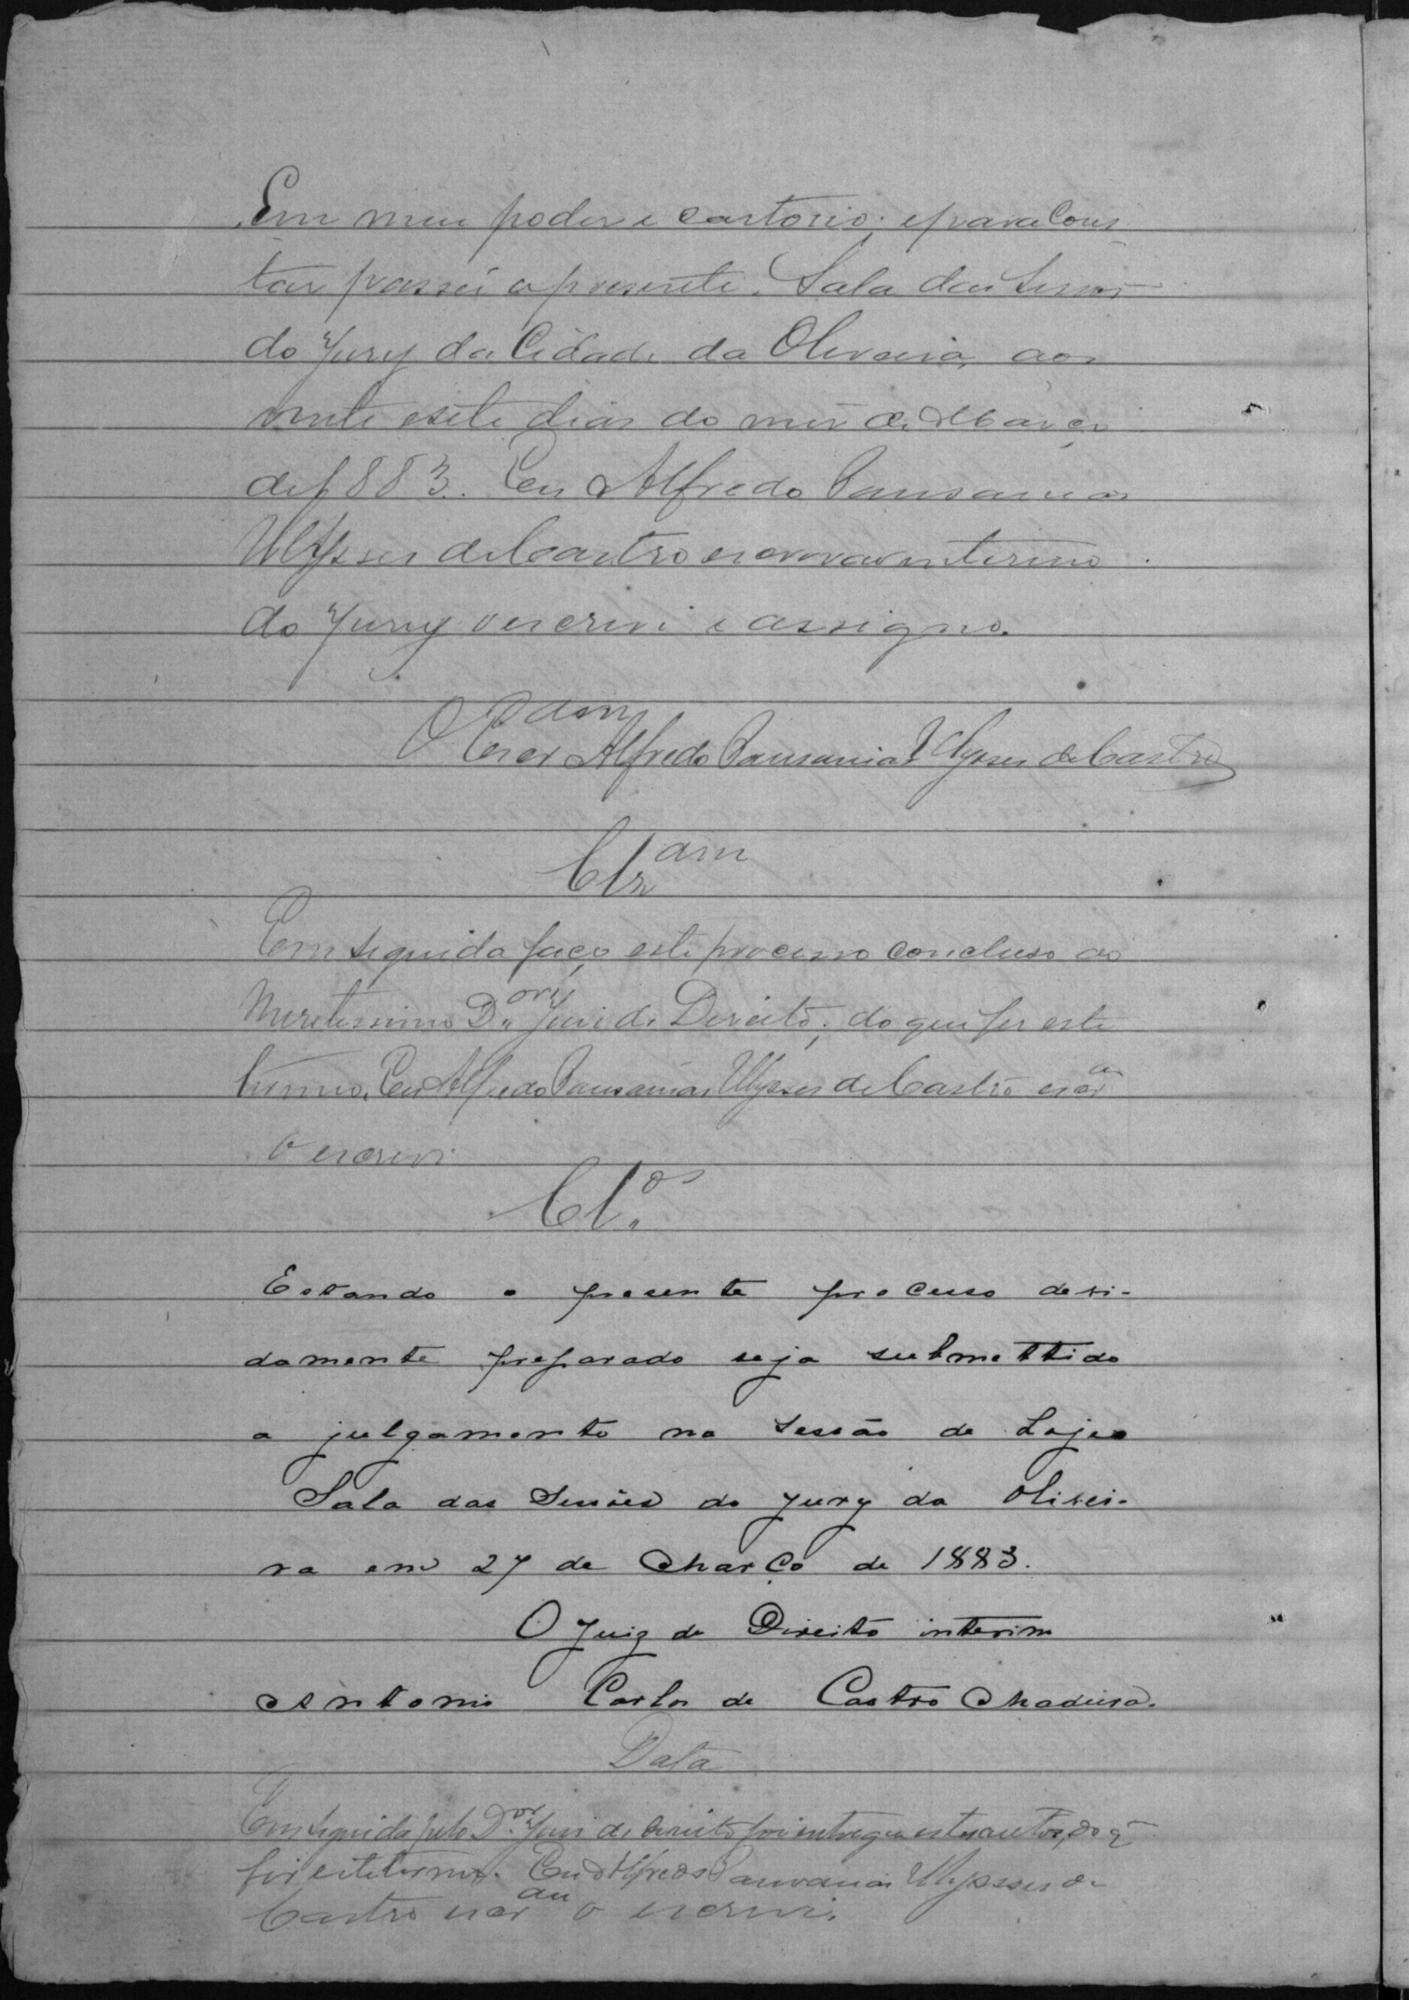 Em meu poder e cartorio; e para Cons
tar passei a presente. Sala das Sessões
do Jury da Cidade da Oliveira, aos
vinte e sete dias do mez de Março
de 1883. Eu Alfredo Pausanias
Ulysses de Castro escrivão interino
do Jury o escrevi e assigno.
O Escr.am Alfredo Pausanias Ulysses de Castro
Cl.am
Em seguida faço este processo concluso ao
Meretissimo D.or Juiz de Direito; do que fiz este
termo. Eu Alfredo Pausanias Ulysses de Castro escr.am
o escrevi.
Cl.os
Estando o presente processo devi-
damente preparado seja submettido
a julgamento na sessão de hoje
Sala das Sessões do Jury da Olivei-
ra em 27 de Março de 1883.
O Juiz de Direito interino
Antonio Carlos de Castro Madeira.
Data
Em seguida pelo D.or Juiz de Direito foi entregue estes autos, do q̃
fiz este termo. Eu Alfredo Pausanias Ulysses de
Castro escr.am o escrevi.